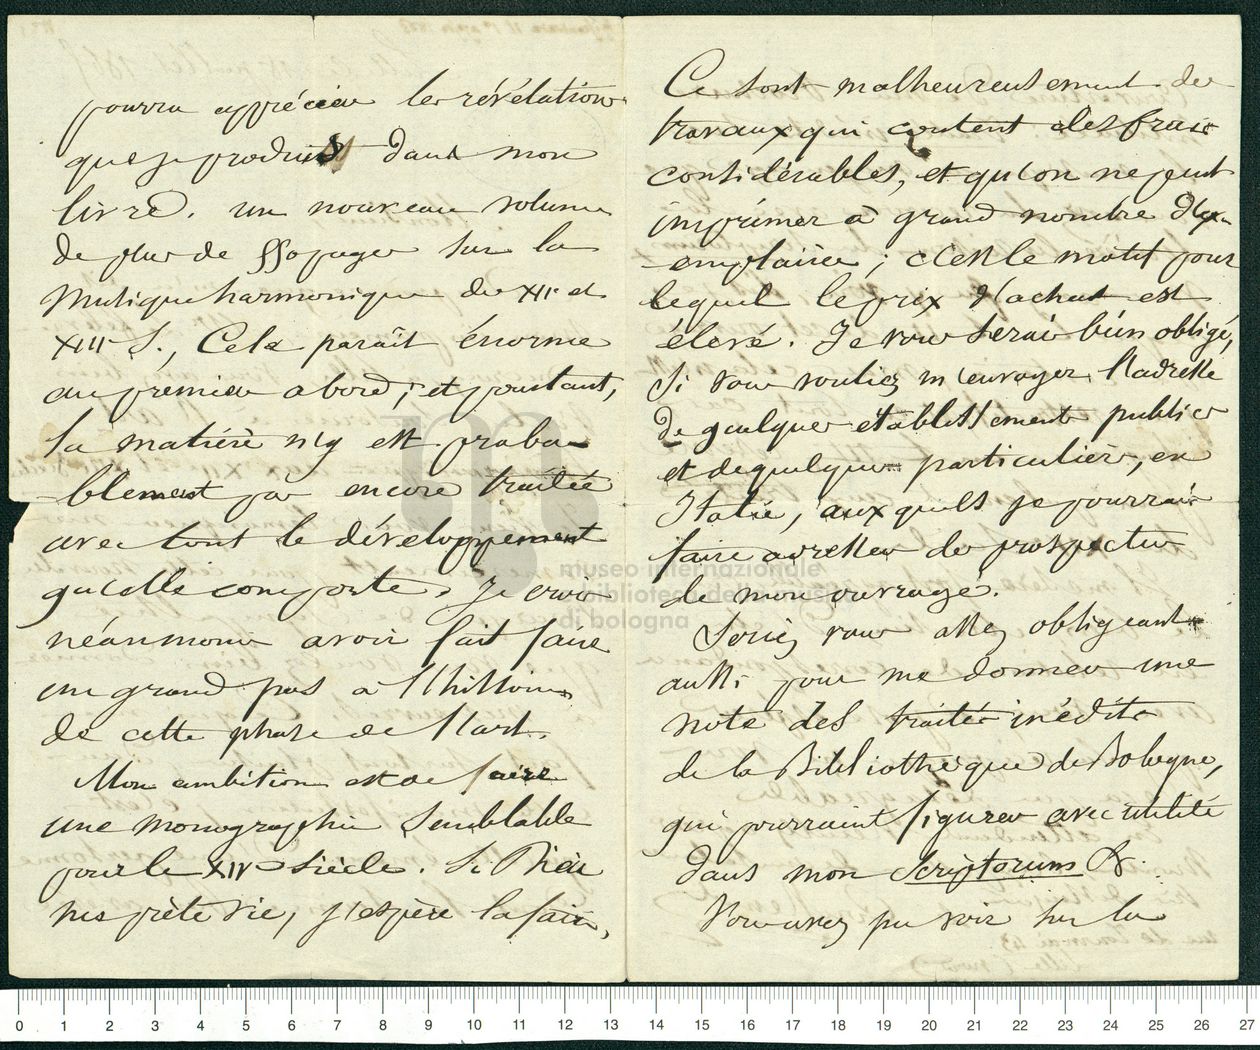 pourra apprécier les révélations
que je produis dans mon
livre. un nouveau volume
de plus de 550 pages sur la
Musique harmonique du XII et
XIII S., Cela parait énorme
au premier abord; et pourtant,
la matière n'y est proba-
blement pas encore traitée
avec tout le développement
qu'elle comporte. Je crois
néanmoins avoir fait faire
un grand pas à l'histoire
de cette phase de l'art.
Mon ambition est de faire
une monographie semblable
pour le XIVe siècle. Si Dieu
me prète vie, j'espère la faire,
Ce sont malheureusement des
travaux qui coutent des frais
considérables, et qu'on ne peut
imprimer à grand nombre d'ex-
emplaires; c'est le motif pour
lequel le prix d'achat est
élevé. Je vous serai bien obligé,
si vous vouliez m'envoyer l'adresse
de quelques établissements publics
et de quelques particuliers, en
Italie, auxquels je pourrais
faire adresser des prospectus
de mon ouvrage.
Seriez vous assez obligeant
aussi pour me donner une
note des traités inédits
de la Bibliothèque de Bologne,
qui pourraient figurer avec utilité
dans mon Scriptorum &.
Vous avez pu voir sur la
museo internazionale
e biblioteca della musica
di bologna
0 1 2 3 4 5 6 7 8 9 10 11 12 13 14 15 16 17 18 19 20 21 22 23 24 25 26 27